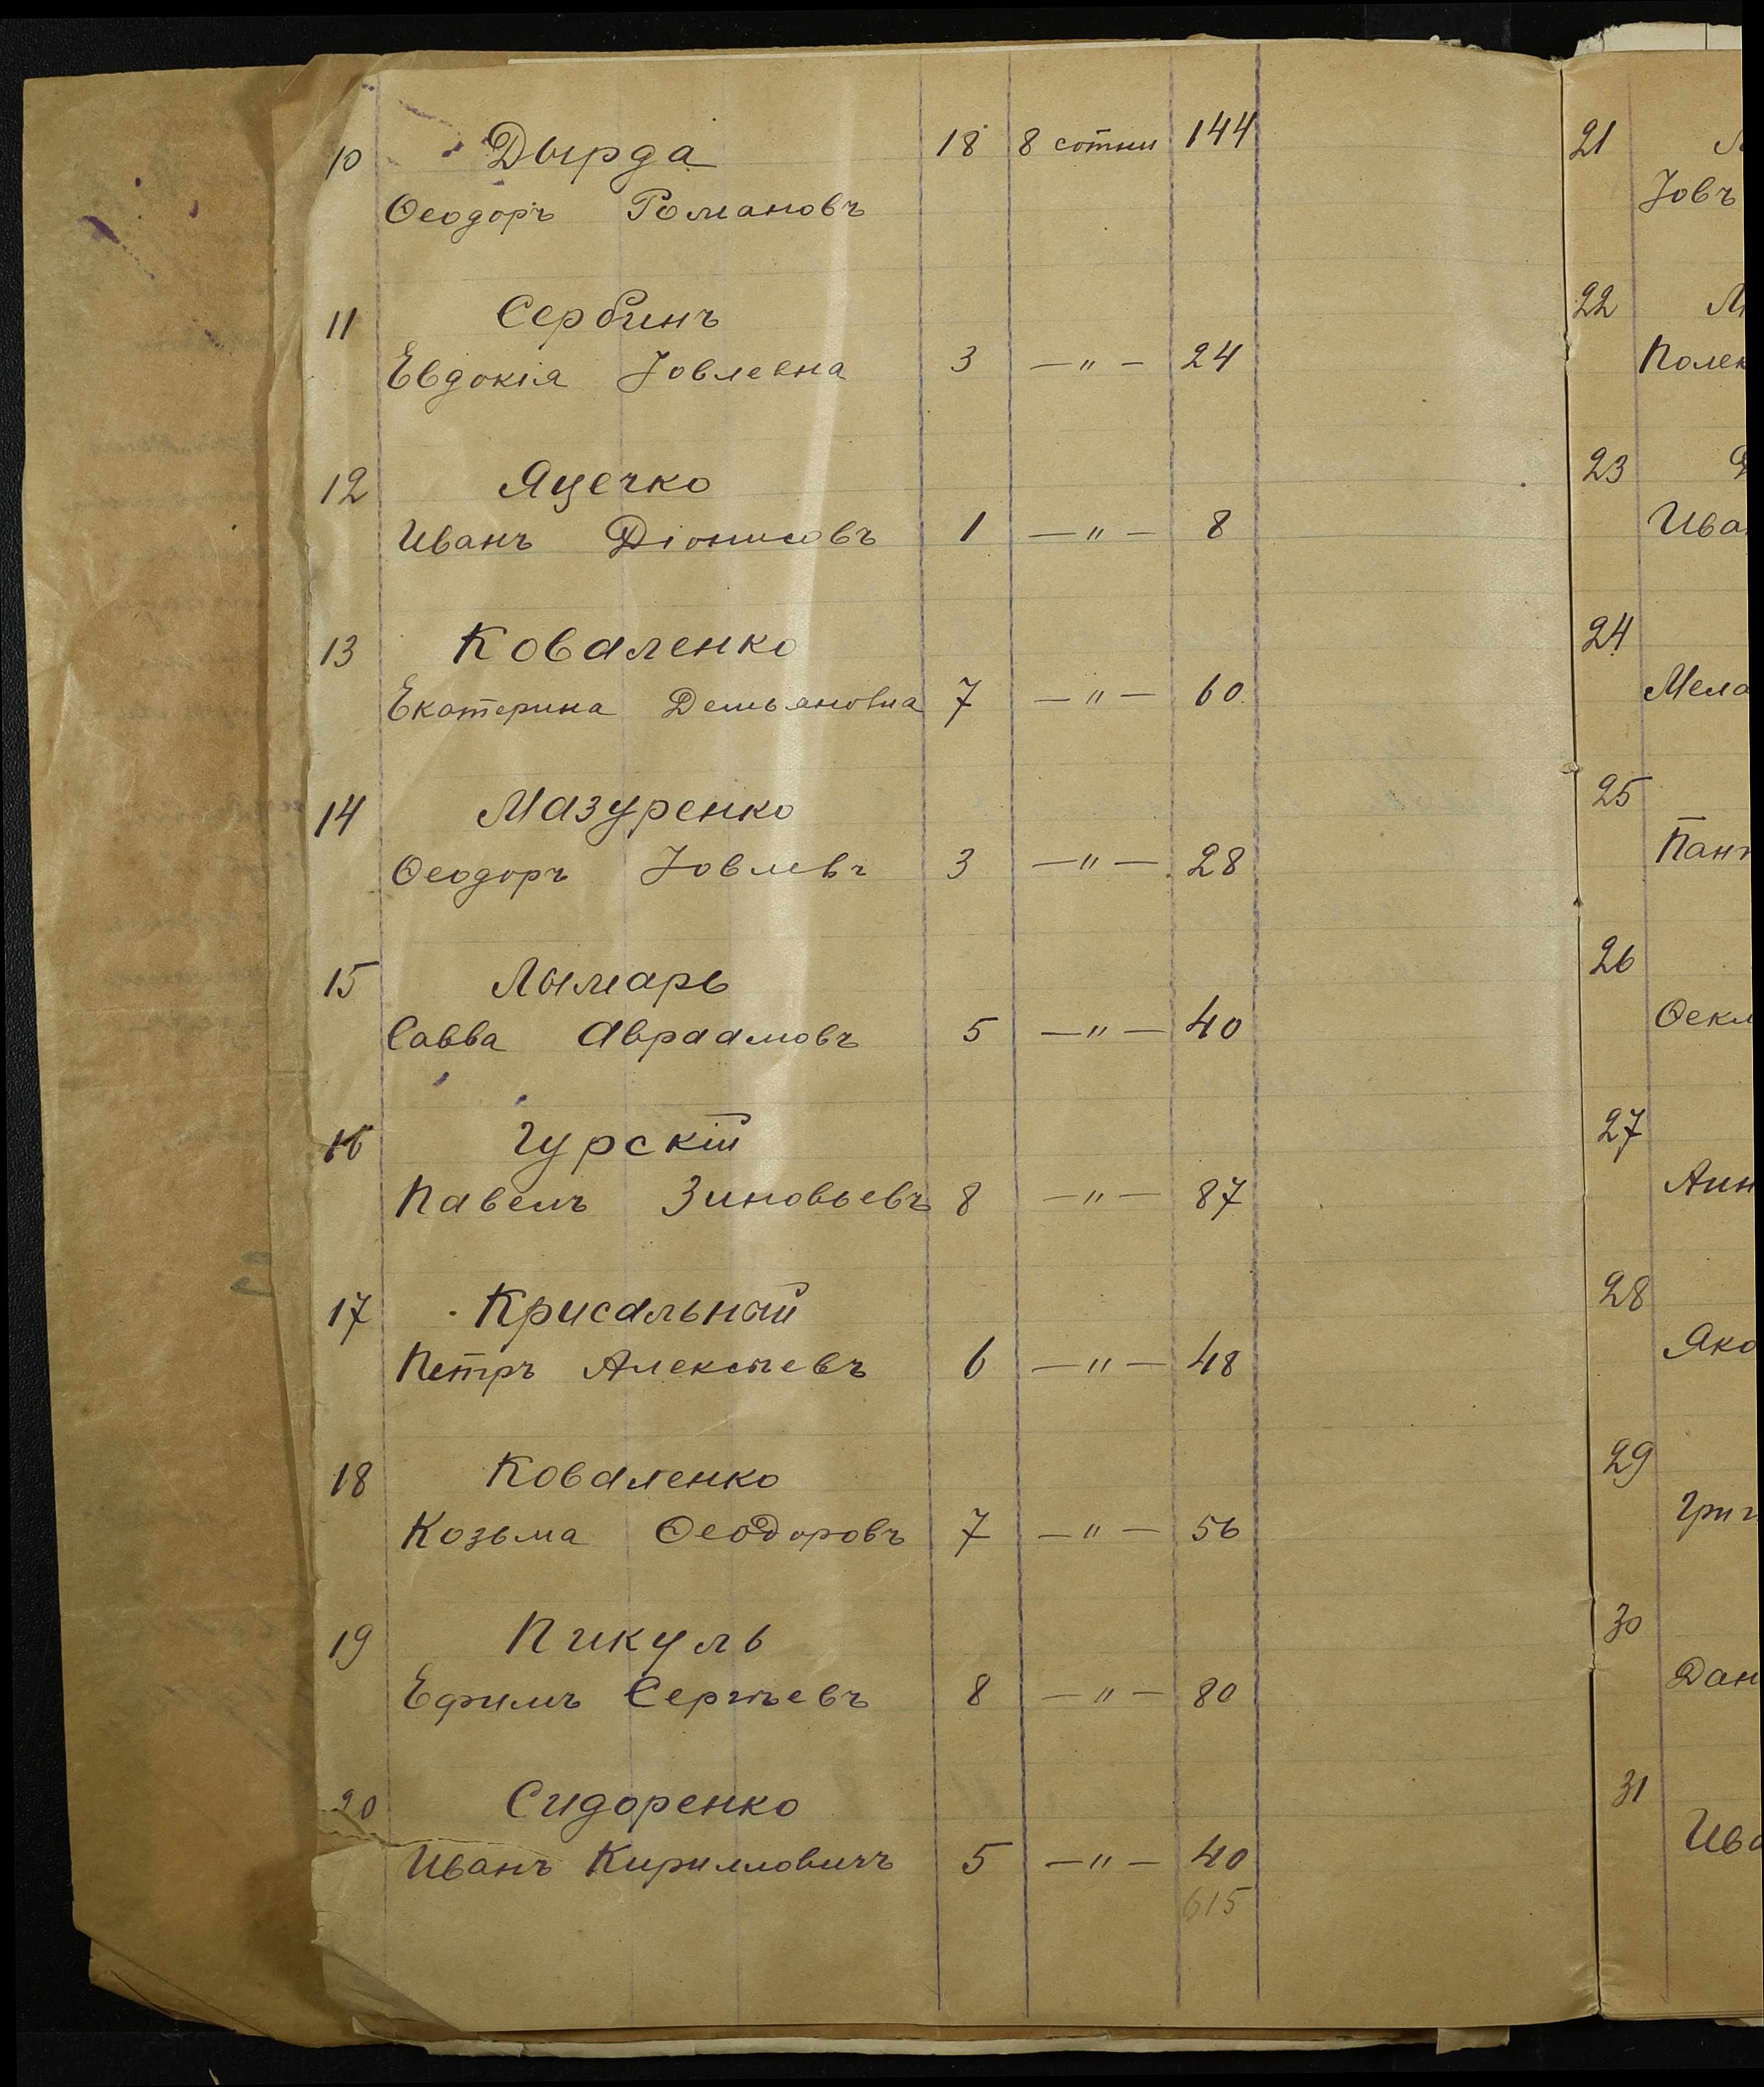 10 Дырда 18 8 сотни 144
Ѳеодоръ Романовъ
11 Сербинъ
Евдокія Іовлевна 3 —"— 24
12 Яцечко
Иванъ Діонисовъ 1 —"— 8
13 Коваленко
Екатерина Демьяновна 7 —"— 60
14 Мазуренко
Ѳеодоръ Іовлевъ 3 —"— 28
15 Лымарь
Савва Авраамовъ 5 —"— 40
16 Гурскій
Павелъ Зиновьевъ 8 —"— 87
17 Крисальный
Петръ Алексѣевъ 6 —"— 48
18 Коваленко
Козьма Ѳеодоровъ 7 —"— 56
19 Пикуль
Ефимъ Сергѣевъ 8 —"— 80
20 Сидоренко
Иванъ Кирилловичъ 5 —"— 40
615
21
Іовъ
22
23
24
25
26
27
28
29
30
31